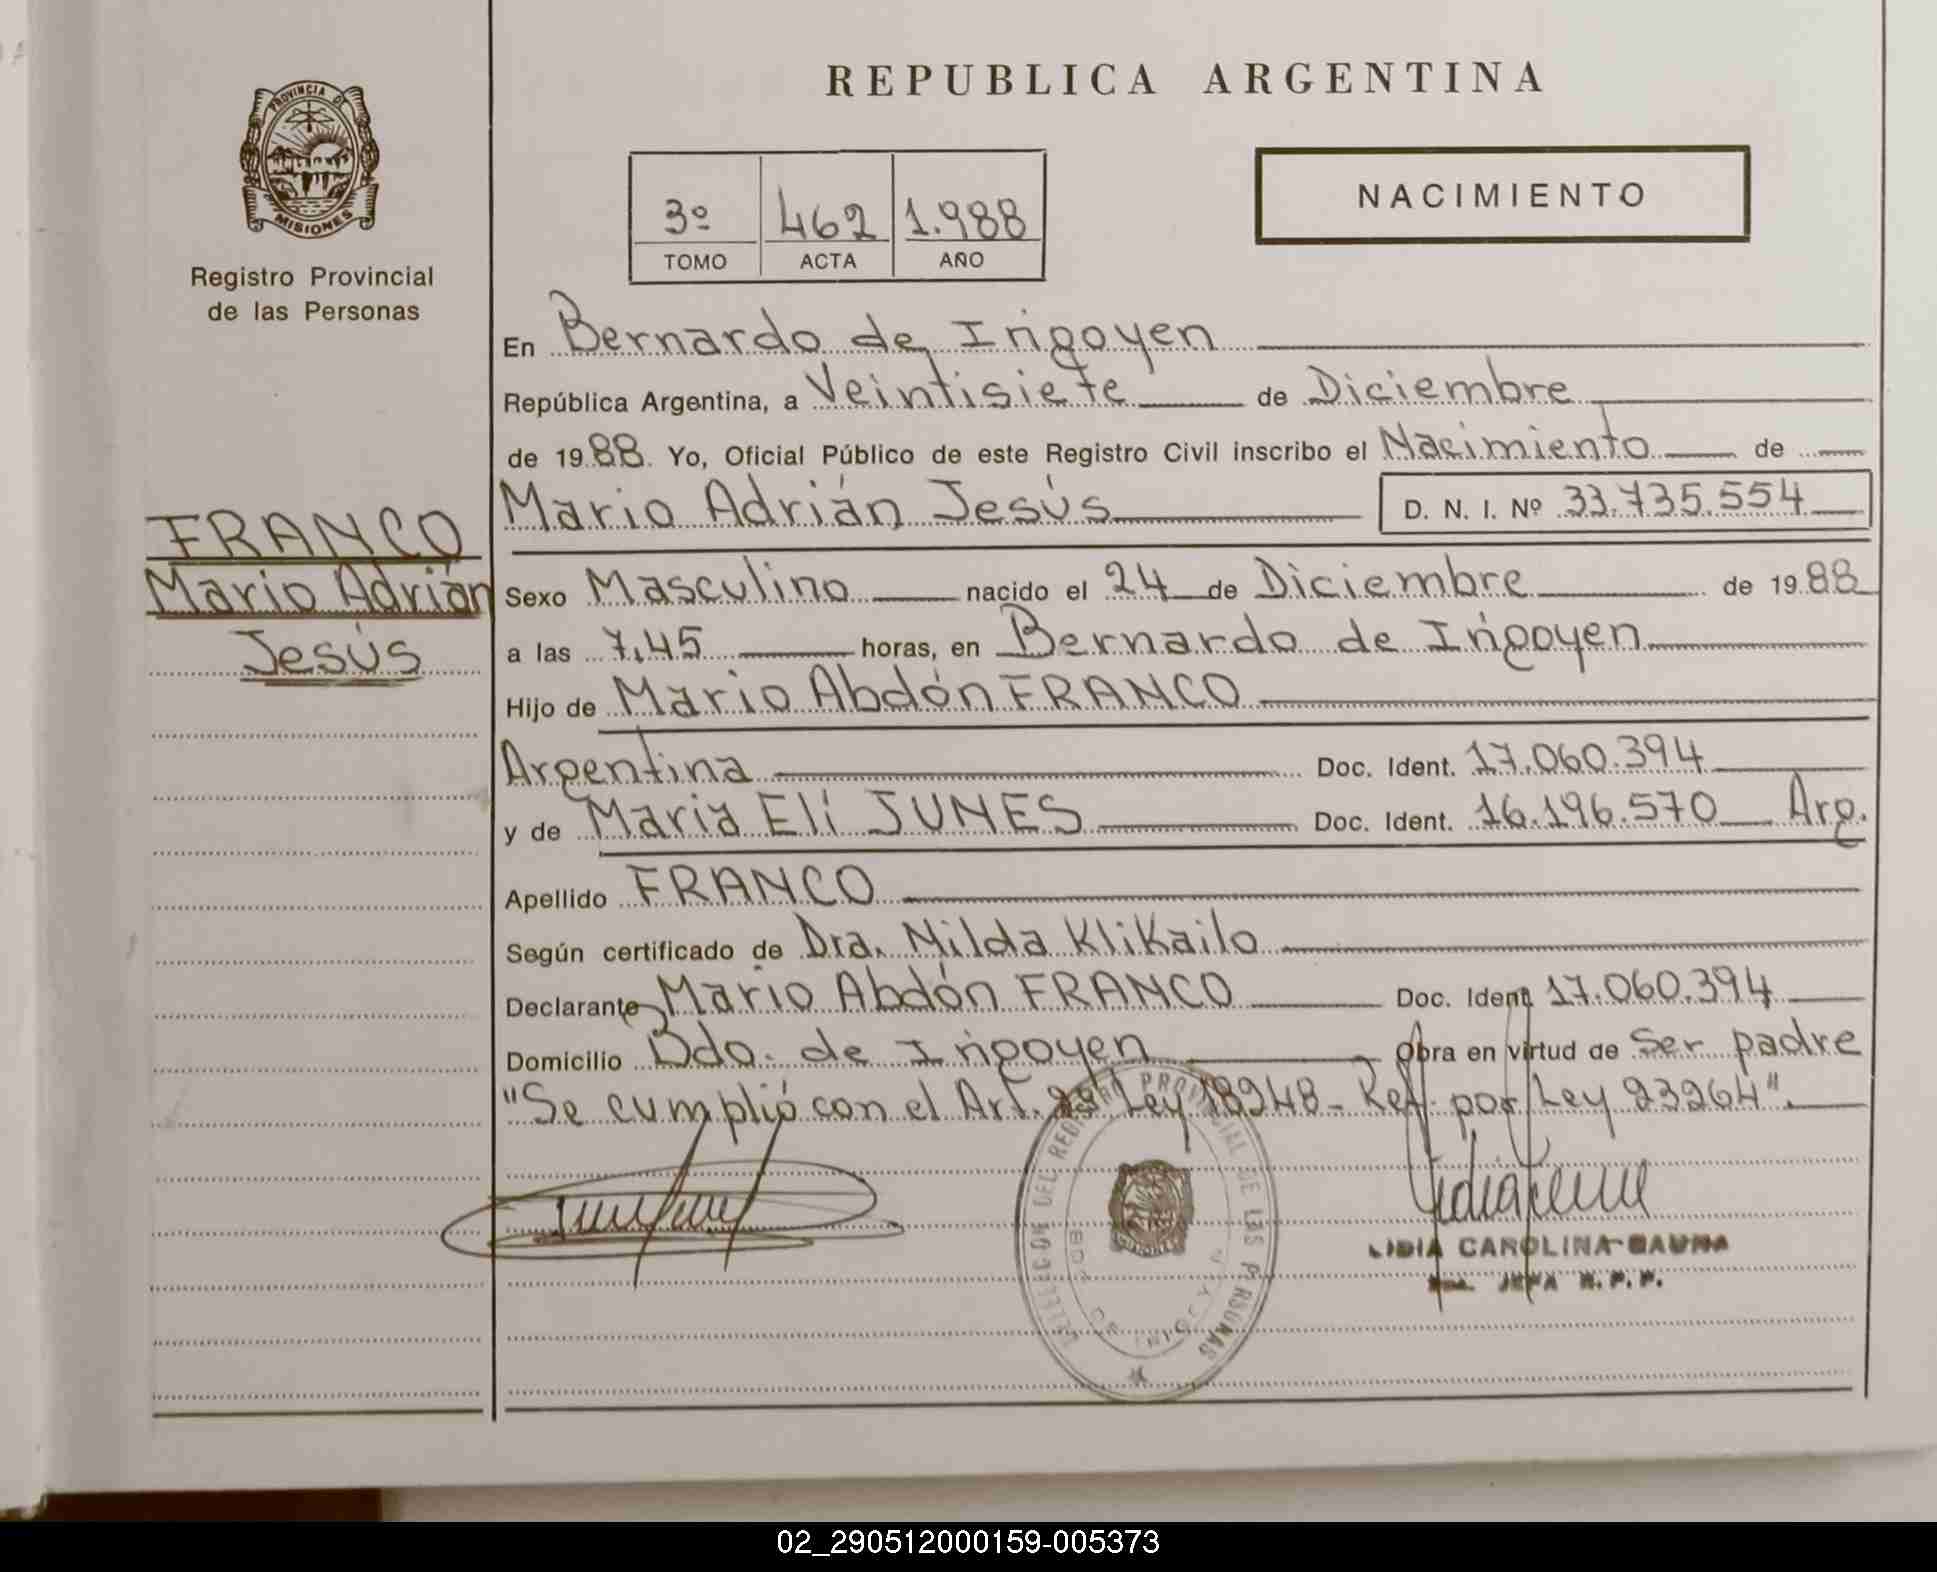 REPUBLICA ARGENTINA
PROVINCIA DE
MISIONES
Registro Provincial
de las Personas
3º 462 1.988
TOMO ACTA AÑO
NACIMIENTO
En Bernardo de Irigoyen
República Argentina, a Veintisiete de Diciembre
de 1988 Yo, Oficial Público de este Registro Civil inscribo el Nacimiento de
Mario Adrián Jesús D. N. I. Nº 33.735.554
FRANCO
Mario Adrián
Jesús
Sexo Masculino nacido el 24 de Diciembre de 1988
a las 7,45 horas, en Bernardo de Irigoyen
Hijo de Mario Abdón FRANCO
Argentina Doc. Ident. 17.060.394
y de Maria Eli JUNES Doc. Ident. 16.196.570 Arg.
Apellido FRANCO
Según certificado de Dra. Nilda Klikailo
Declarante Mario Abdón FRANCO Doc. Ident. 17.060.394
Domicilio Bdo. de Irigoyen Obra en virtud de Ser padre
"Se cumplió con el Art. Ley 18248- Ref. por Ley 23264".
REGISTRO PROVINCIAL DE LAS PERSONAS
MISIONES
LIDIA CAROLINA
JEFA R.P.P.
02_290512000159-005373